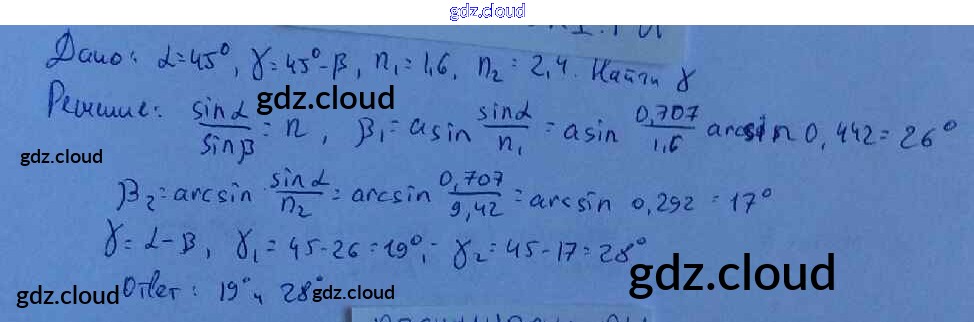 gdz.cloud
Дано: α=45°, γ=45°-β, n₁=1,6, n₂=2,4. Найти γ
Решение: sinα/sinβ = n, β₁= asin sinα/n₁ = asin 0,707/1,6 arcsin 0,442=26°
gdz.cloud
gdz.cloud
β₂=arcsin sinα/n₂ = arcsin 0,707/9,42 = arcsin 0,292=17°
γ=α-β, γ₁=45-26=19°; γ₂=45-17=28°
gdz.cloud
Ответ: 19° и 28°
gdz.cloud
gdz.cloud